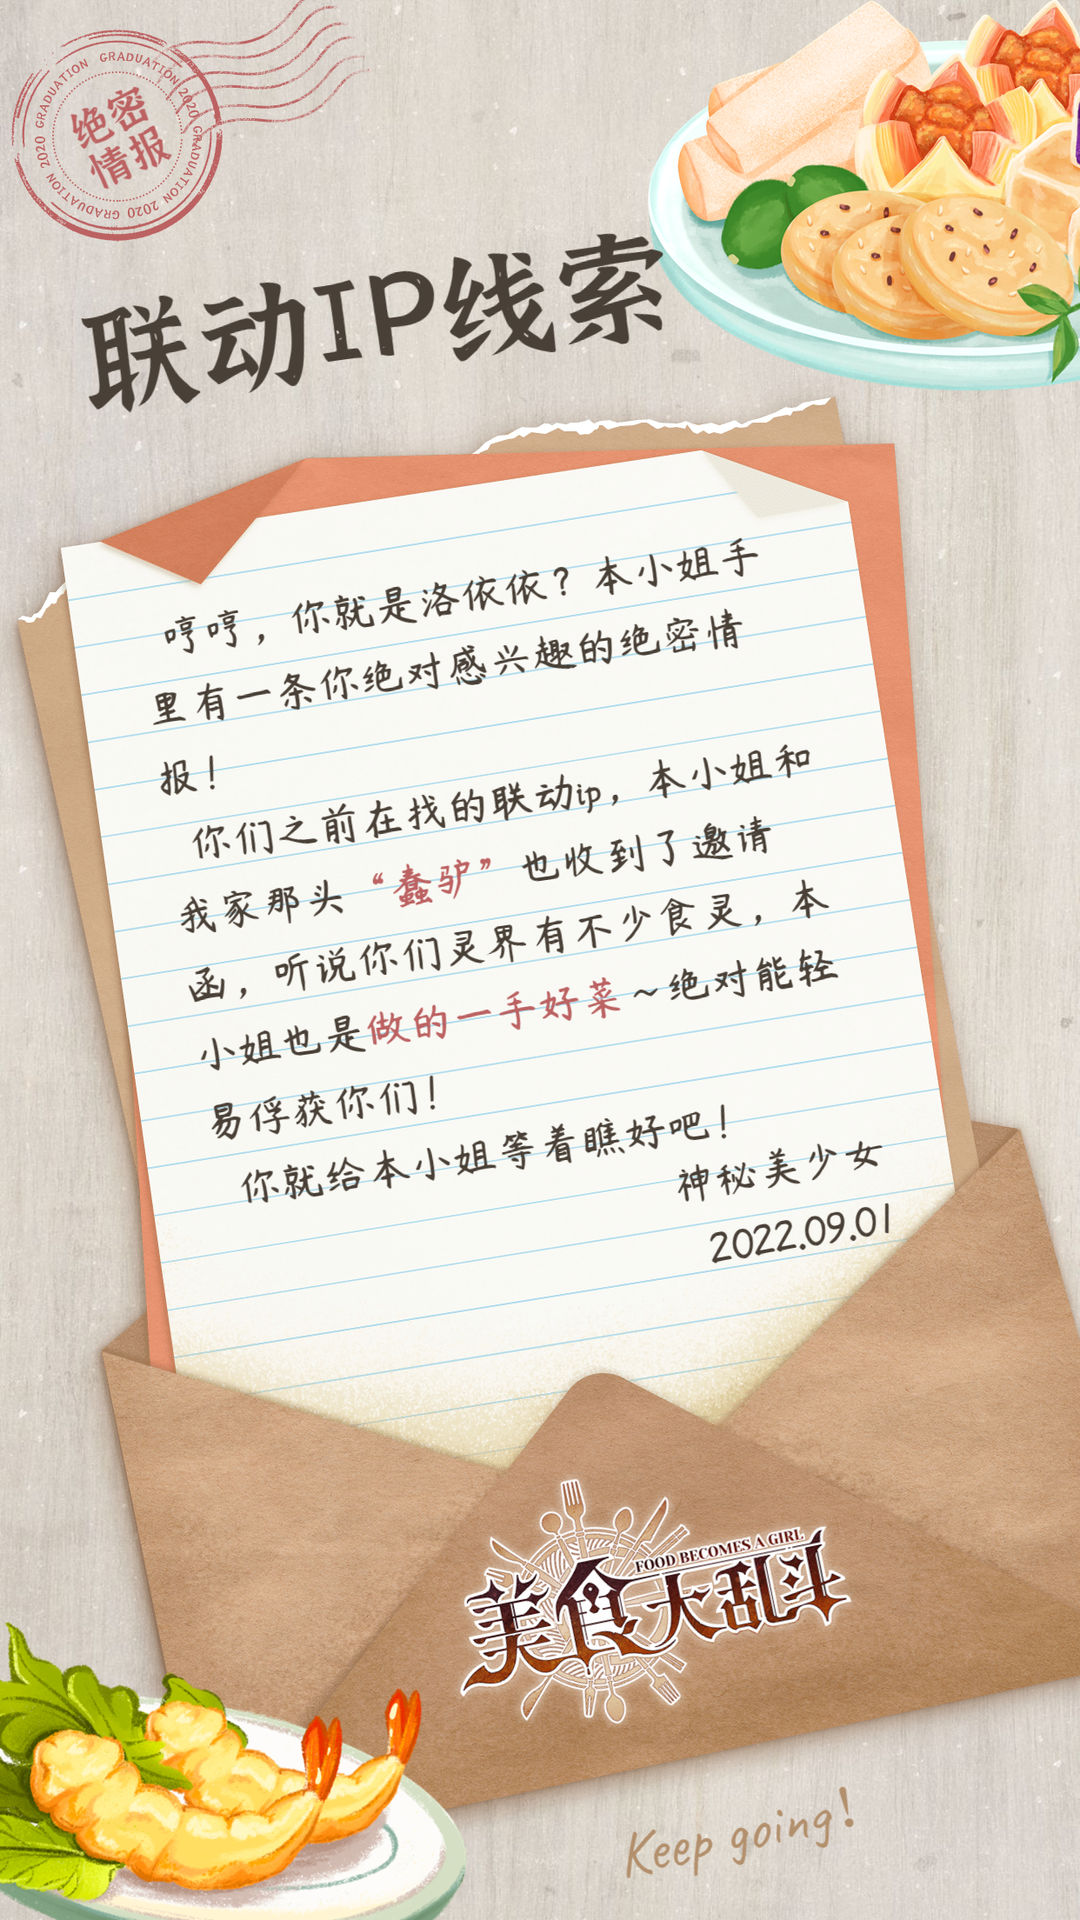 GRADUATION 2020 GRADUATION 2020 GRADUATION 2020
绝密
情报
联动IP线索
哼哼，你就是洛依依？本小姐手
里有一条你绝对感兴趣的绝密情
报！
你们之前在找的联动ip，本小姐和
我家那头“蠢驴”也收到了邀请
函，听说你们灵界有不少食灵，本
小姐也是做的一手好菜～绝对能轻
易俘获你们！
你就给本小姐等着瞧好吧！
神秘美少女
2022.09.01
FOOD BECOMES A GIRL
美食大乱斗
Keep going!